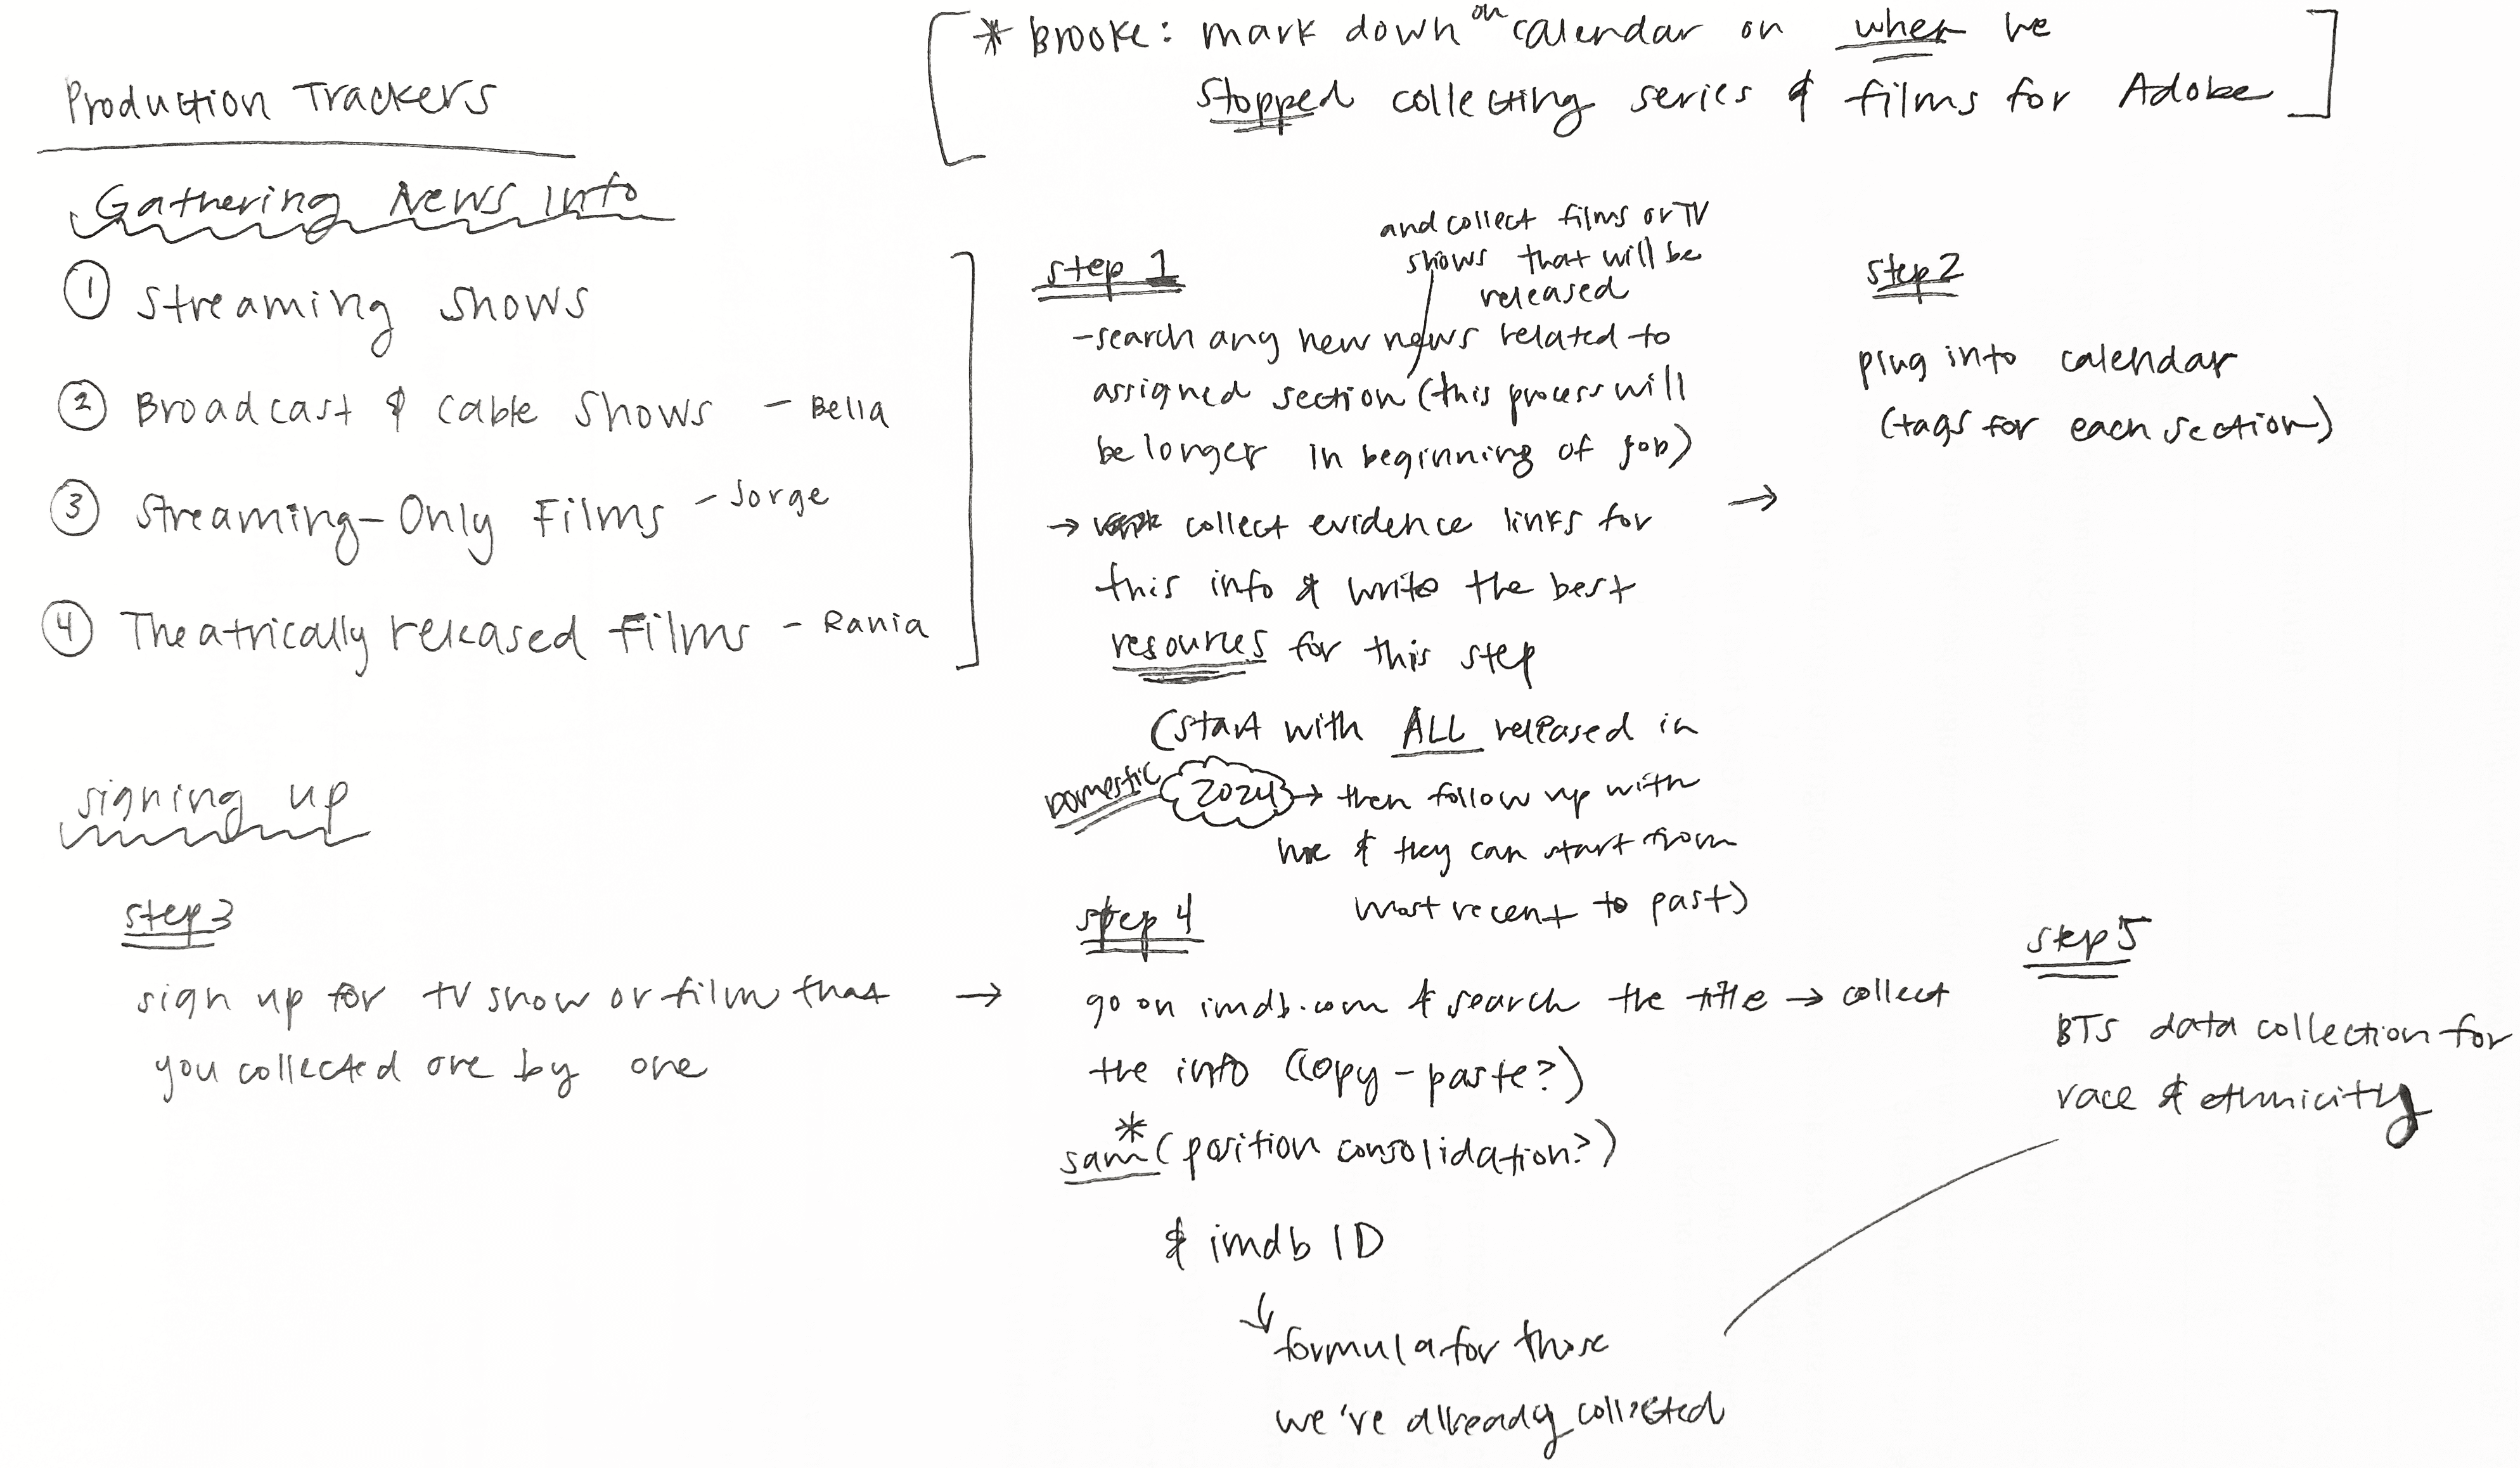 * Brooke: mark down on calendar on when we
stopped collecting series & films for Adobe
Production Trackers
Gathering News Info
① Streaming shows
② Broadcast & cable shows - Bella
③ Streaming-Only Films - Jorge
④ Theatrically released films - Rania
step 1
and collect films or TV
shows that will be
released
-search any new news related to
assigned section (this process will
be longer in beginning of job)
→ collect evidence links for
this info & write the best
resources for this step
(start with ALL released in
Domestic 2024 → then follow up with
me & they can start from
most recent to past)
→
step 2
plug into calendar
(tags for each section)
signing up
step 3
sign up for tv show or film that
you collected one by one
→
step 4
go on imdb.com & search the title → collect
the info (copy-paste?)
*
sam (position consolidation?)
& imdb ID
↓
formula for those
we're already collected
step 5
BTS data collection for
race & ethnicity